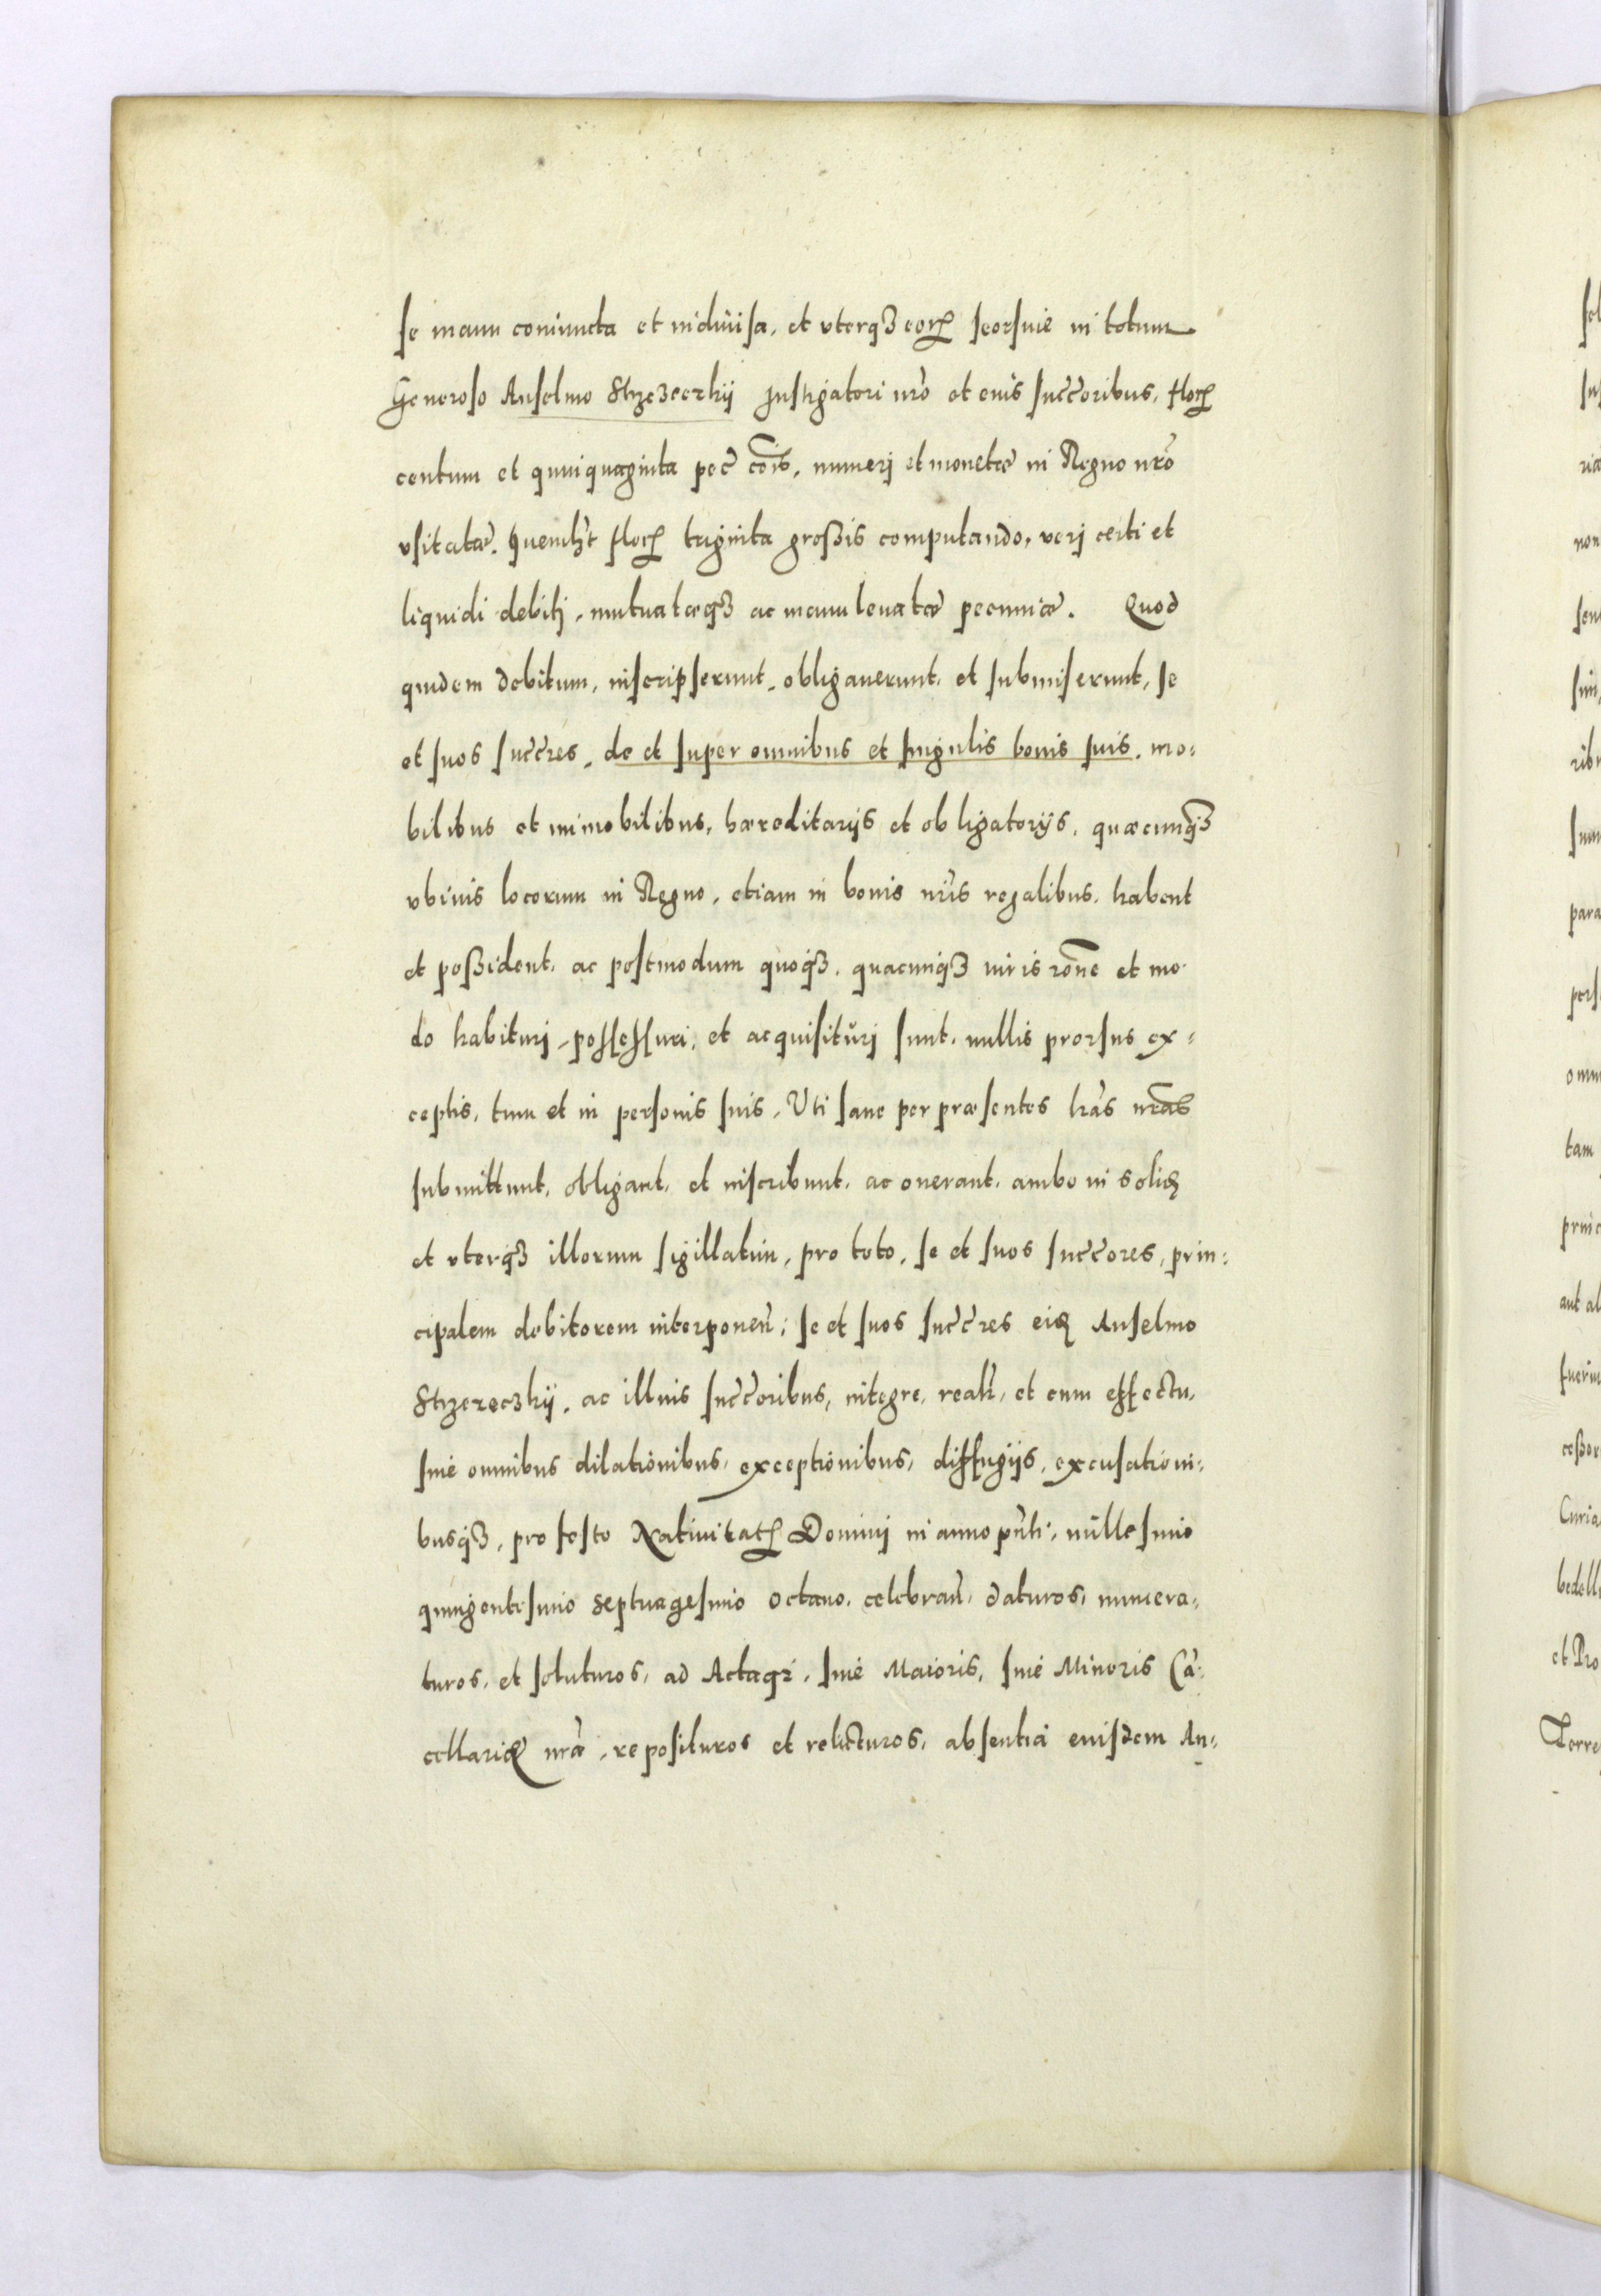 se manu coniuncta et indiuisa, et vterqꝫ eorꝝ seorsiue in totum
Generoso Anselmo Strzezeczkij Instigatori nrō et eius succ̄oribus, florꝝ
centum et quinquaginta pec̄ cōis, numerj et monetæ in Regno nrō
vsitatæ. Quemlꝫt florꝝ triginta großis computando, verj certi et
liquidi debitj, mutuatæqꝫ ac manuleuatæ pecuniæ. Quod
quidem debitum, inscripserunt, obligauerunt, et submiserunt, se
et suos succ̄res, de et super omnibus et singulis bonis suis, mo-
bilibus et immobilibus, hæreditarijs et obligatorijs, quæcunqꝫ
vbiuis locorum in Regno, etiam in bonis nr̄is regalibus, habent
et poßident, ac postmodum quoqꝫ, quacunqꝫ iuris rōne et mo-
do habiturj, possessuri, et acquisiturj sunt, nullis prorsus ex-
ceptis, tum et in personis suis, Uti sane per præsentes lrās nrās
submittunt, obligant, et inscribunt, ac onerant, ambo in soliđ
et vterqꝫ illorum sigillatim, pro toto, se et suos succ̄ores, prin-
cipalem debitorem interponeñ; se et suos succ̄res eiđ Anselmo
Strzezeczkij, ac illius succ̄oribus, integre, realr̄, et cum effectu,
sine omnibus dilationibus, exceptionibus, diffugijs, excusationi-
busqꝫ, pro festo Natiuitatꝭ Dominj in anno pñti, millesimo
quingentesimo septuagesimo octauo, celebrañ, daturos, numera-
turos, et soluturos, ad Actaqꝫ, siue Maioris, siue Minoris Cā-
cellariæ nrǣ, reposituros et relicturos, absentia eiusdem An-